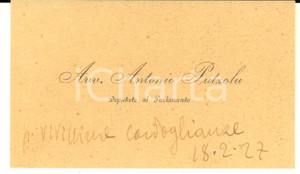 Avv. Antonio Putzolu
Deputato al Parlamento
vivissime condoglianze
18.2.27